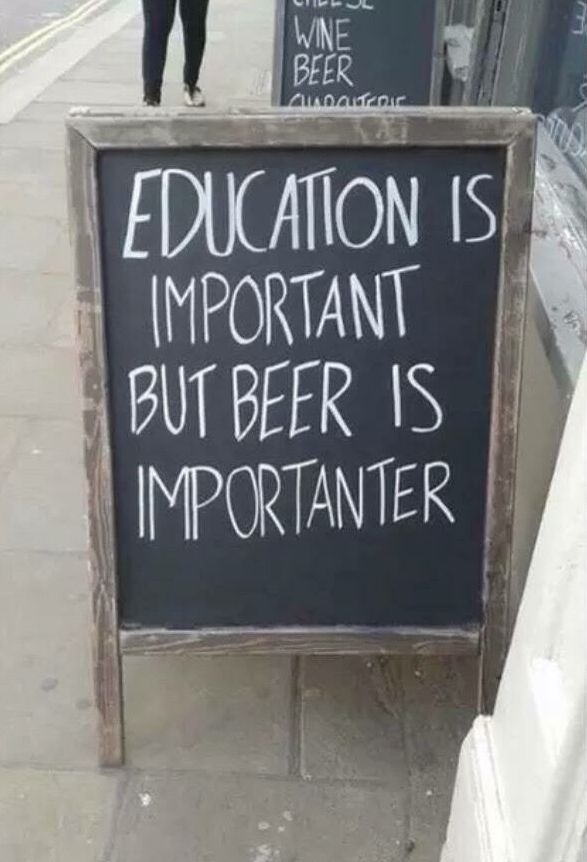 WINE
BEER
EDUCATION IS
IMPORTANT
BUT BEER IS
IMPORTANTER